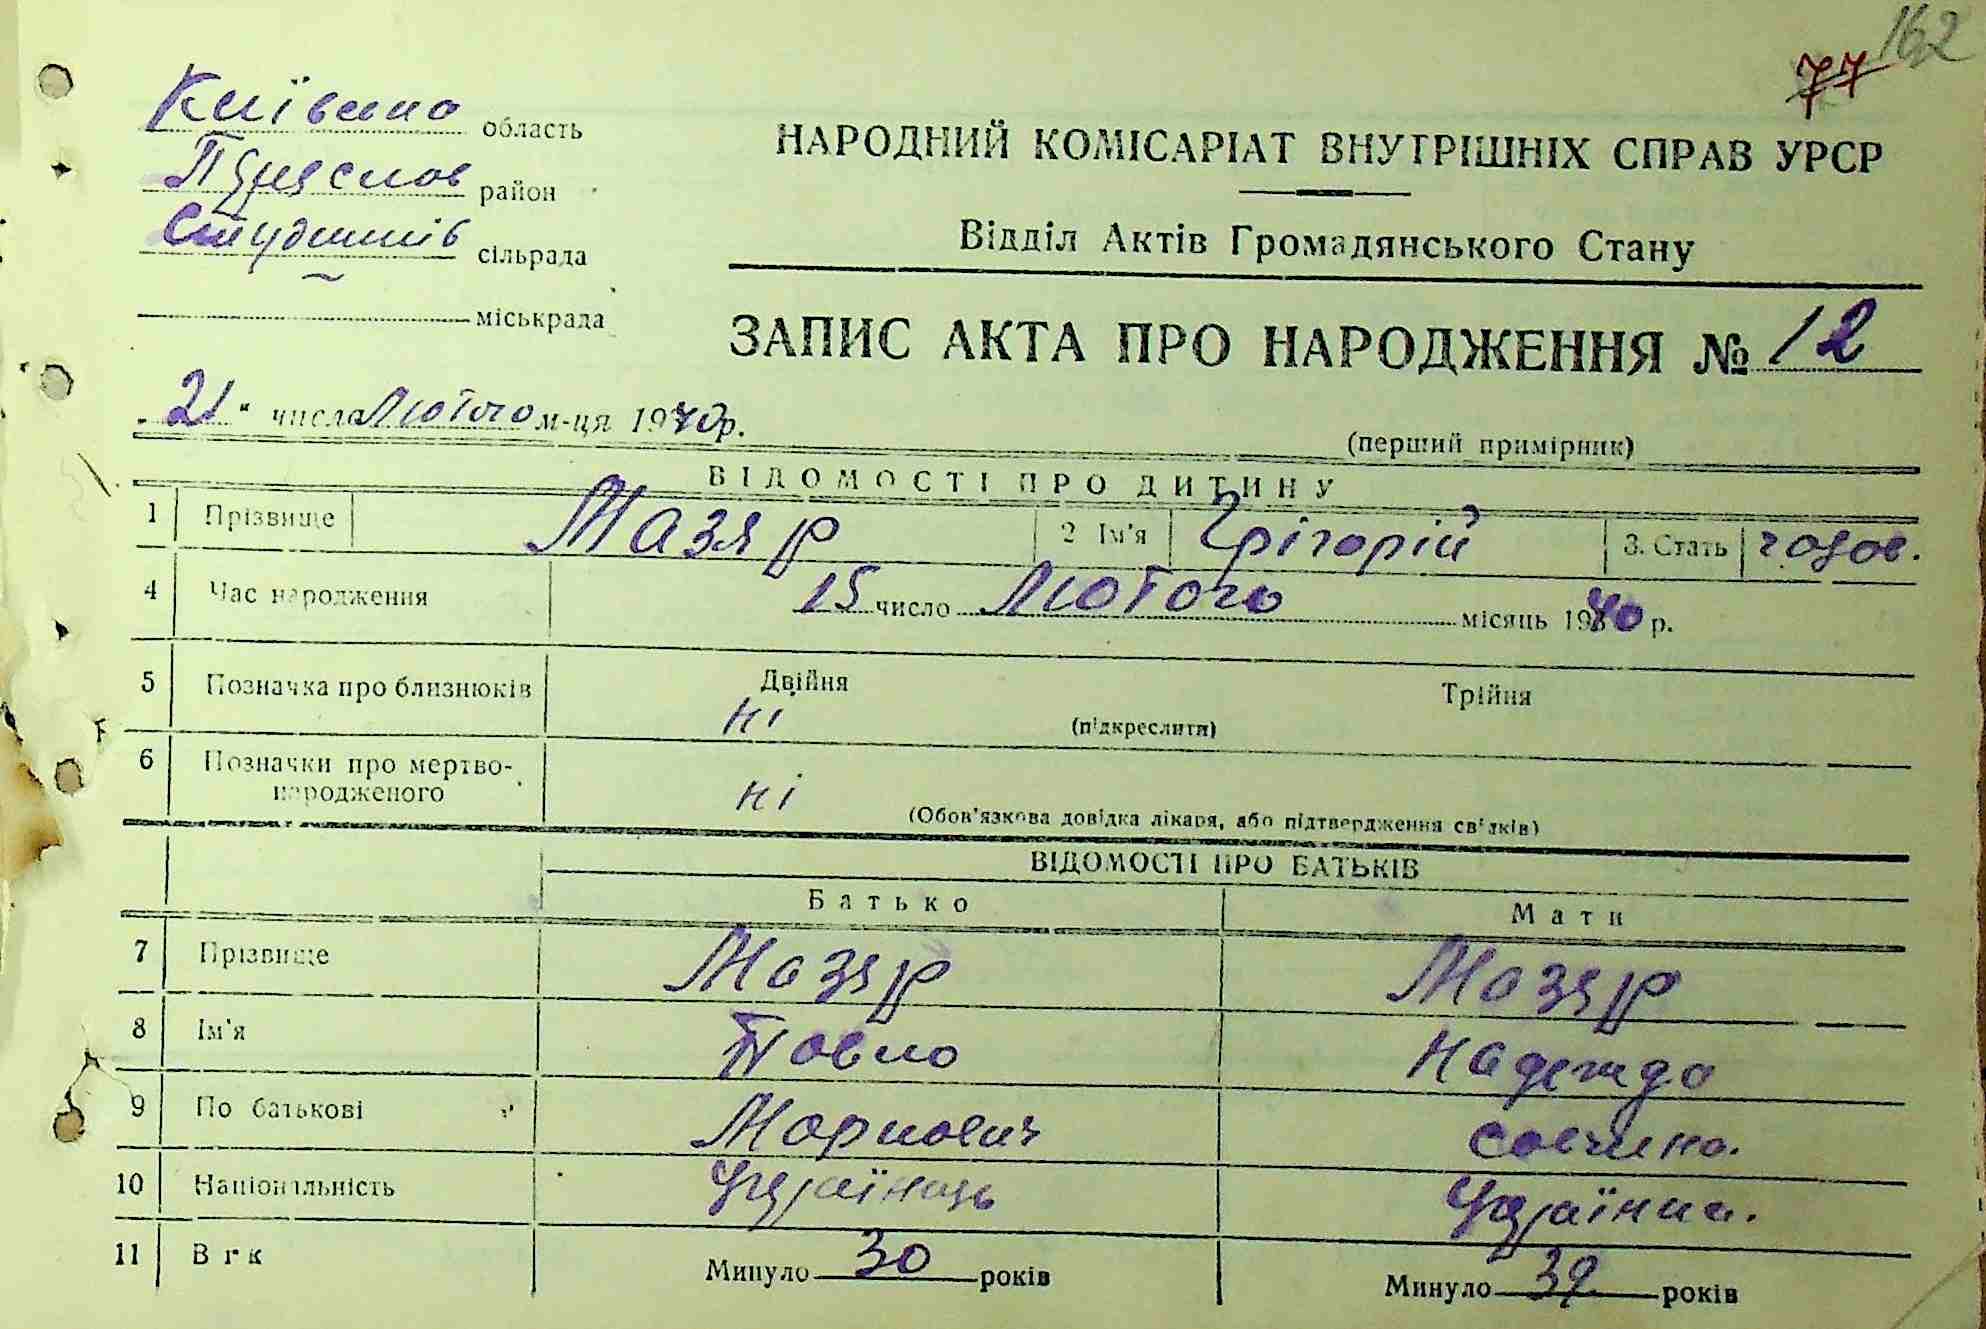 162
77
Київська область
Переяслов район
Студенків сільрада
міськрада
НАРОДНИЙ КОМІСАРІАТ ВНУТРІШНІХ СПРАВ УРСР
Відділ Актів Громадянського Стану
ЗАПИС АКТА ПРО НАРОДЖЕННЯ № 12
"21" числа Лютого м-ця 1940 р.
(перший примірник)
ВІДОМОСТІ ПРО ДИТИНУ
1 Прізвище Мазяр 2 Ім'я Грігорій 3. Стать
4 Час народження 15 число Лютого місяць 1940 р.
5 Позначка про близнюків Двійня Трійня
ні (підкреслити)
6 Позначки про мертво-
народженого ні
(Обов'язкова довідка лікаря, або підтвердження свідків)
ВІДОМОСТІ ПРО БАТЬКІВ
Батько Мати
7 Прізвище Мазяр Мазяр
8 Ім'я Павло Надежда
9 По батькові Маркович Савчина.
10 Національність Українець Українка.
11 Вік Минуло 30 років Минуло 39 років